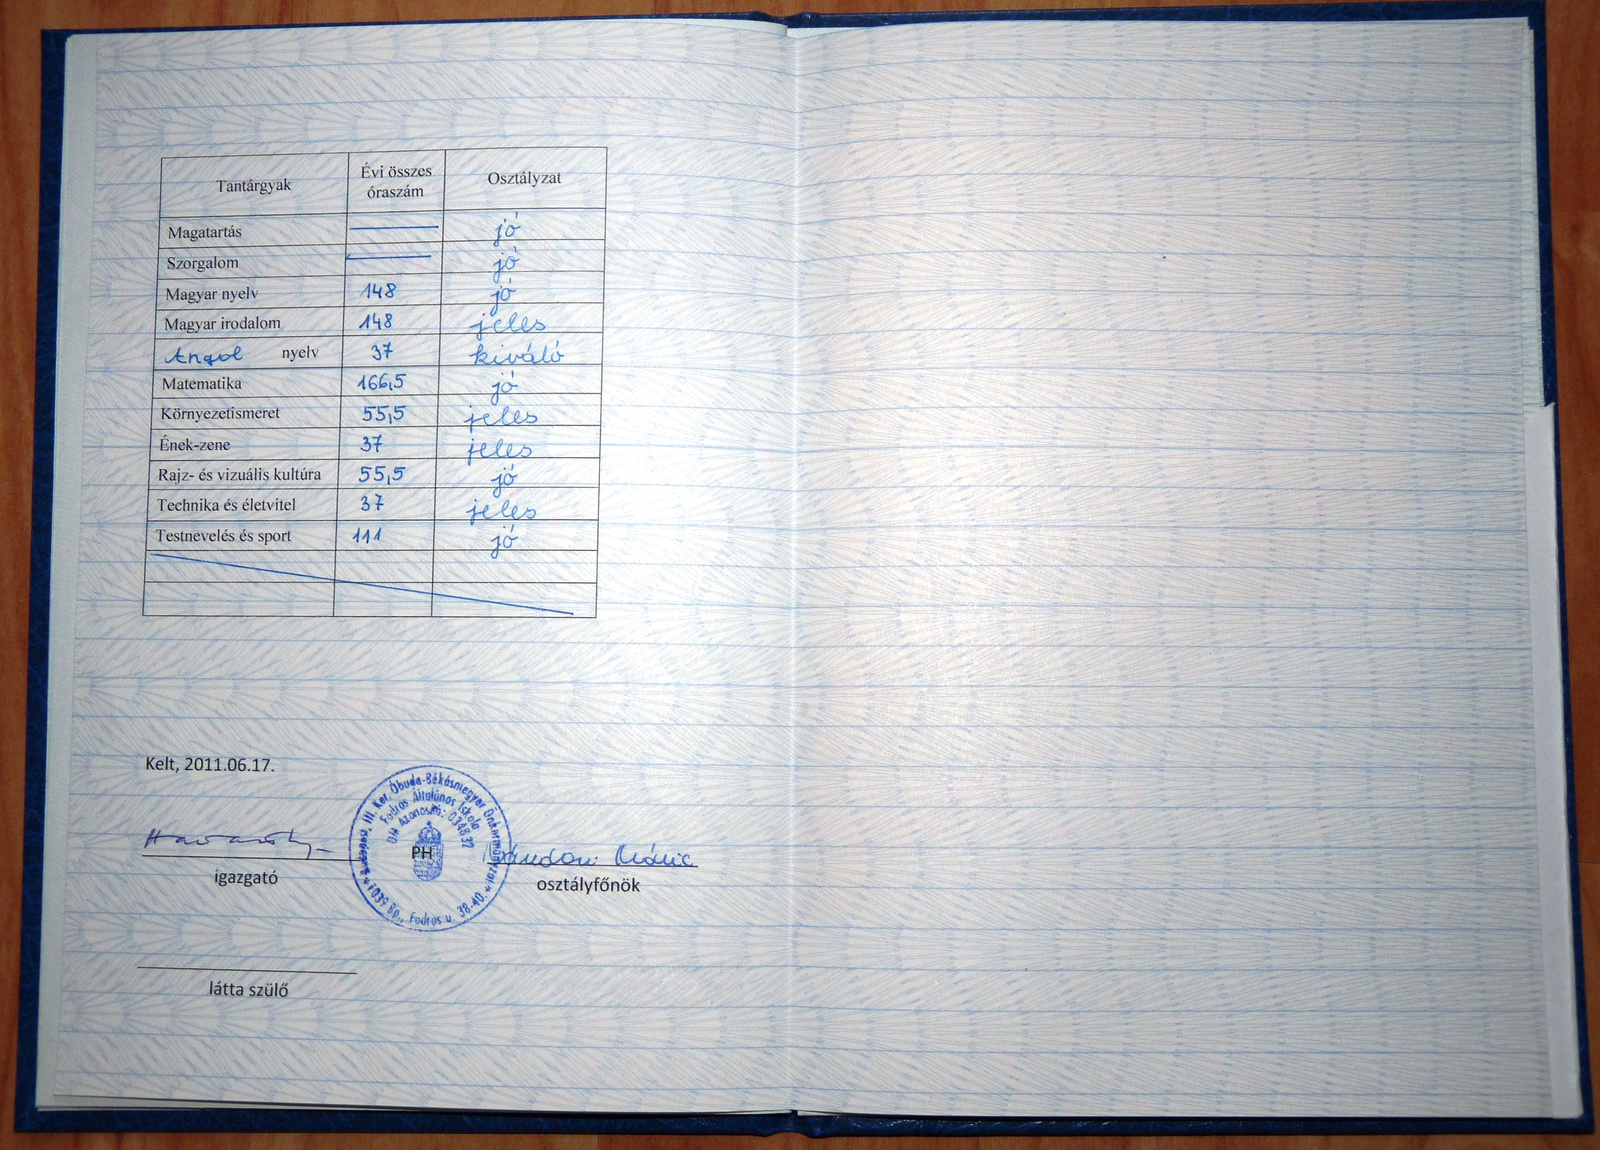 Tantárgyak Évi összes óraszám Osztályzat
Magatartás jó
Szorgalom jó
Magyar nyelv 148 jó
Magyar irodalom 148 jeles
Angol nyelv 37 kiváló
Matematika 166,5 jó
Környezetismeret 55,5 jeles
Ének-zene 37 jeles
Rajz- és vizuális kultúra 55,5 jó
Technika és életvitel 37 jeles
Testnevelés és sport 111 jó
Kelt, 2011.06.17.
Budapest, III. Ker. Óbuda-Békásmegyer Önkormányzat
Fodros Általános Iskola
OM Azonosító: 034837
PH
1039 Bp., Fodros u. 38-40.
igazgató
osztályfőnök
látta szülő